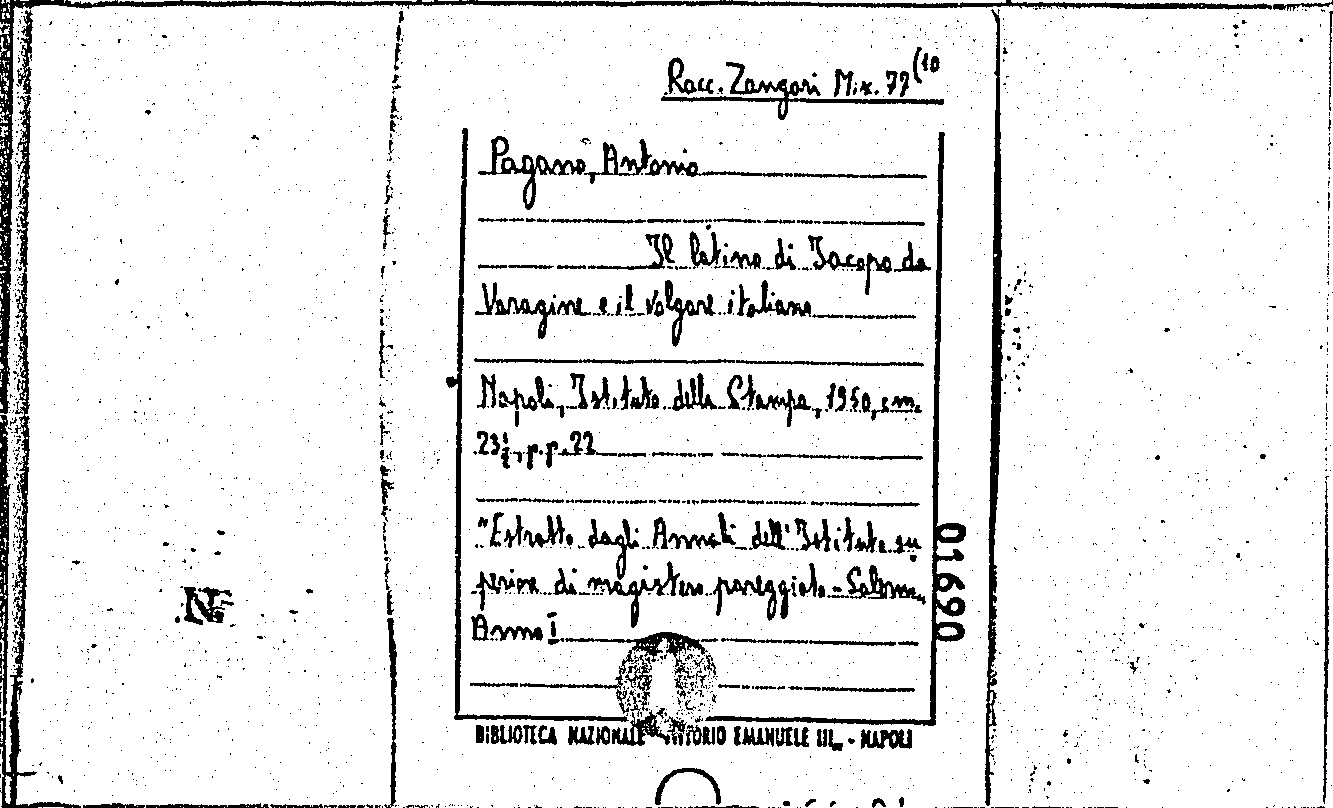 Racc. Zangari Mix. 77(10
Pagano, Antonio
Il latino di Jacopo da
Varagine e il volgare italiano
Napoli, Istituto della Stampa, 1950, cm.
23½, p.p. 22
"Estratto dagli Annali dell'Istituto su
periore di magistero pareggiato - Salerno,
Anno I
01690
BIBLIOTECA NAZIONALE VITTORIO EMANUELE III - NAPOLI
N